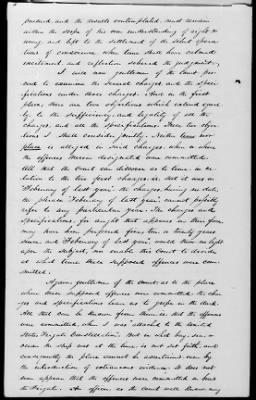 pursued, and the results contemplated, must remain
within the scope of his own understanding of right &
wrong and left to the settlement of the silent opera-
tions of conscience when time shall have calmed
excitement and reflection sobered the judgment.
I will now gentlemen of the Court pro-
ceed to examine the several charges, and the speci-
fications under those charges. And in the first
place, there are two objections which extend equal-
ly to the sufficiency and legality of all the
charges, and all the specifications. These two objec-
tions I shall consider jointly. Neither time nor
place is alleged in said charges, when or where
the offences therein designated were committed.
All that the Court can discover as to time in re-
lation to the two first charges is, that it was in
"February of last year", the charges having no date,
the phrase February of last year, cannot possibly
refer to any particular year. The charges and
specifications, for aught that appears on their face,
may have been preferred from two or twenty years
since, and "February of last year", would throw no light
upon the subject, nor enable this Court to decide
at what time these supposed offences were com-
mitted.
Again gentlemen of the court, as to the place
where these supposed offences were committed, the char-
ges and specifications leave us to grope in the dark.
All that can be known from them is, that the offences
were committed, when I was attached to the United
States Frigate Constellation. But in what bay, sea or
ocean the ship was at the time, is not set forth, and
consequently the place cannot be ascertained even by
the introduction of extraneous evidence. It does not
even appear that the offences were committed on board
the Frigate. An officer, as the court well knows may